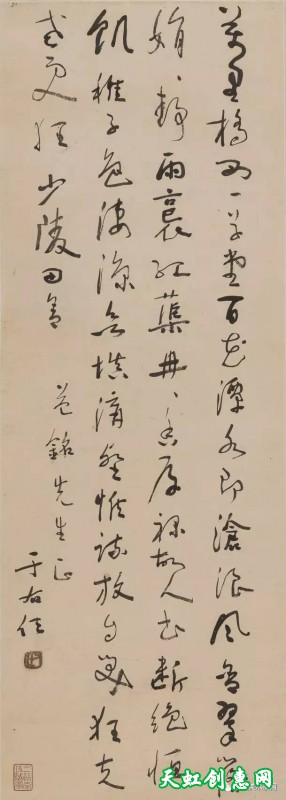 萬里橋西一草堂百花潭水即滄浪風含翠篠
娟〻靜雨裛紅蕖冉〻香厚祿故人書斷絕恆
飢稚子色淒涼欲填溝壑惟疏放自笑狂夫
老更狂 少陵
銘先生正
于右任
天虹创意网